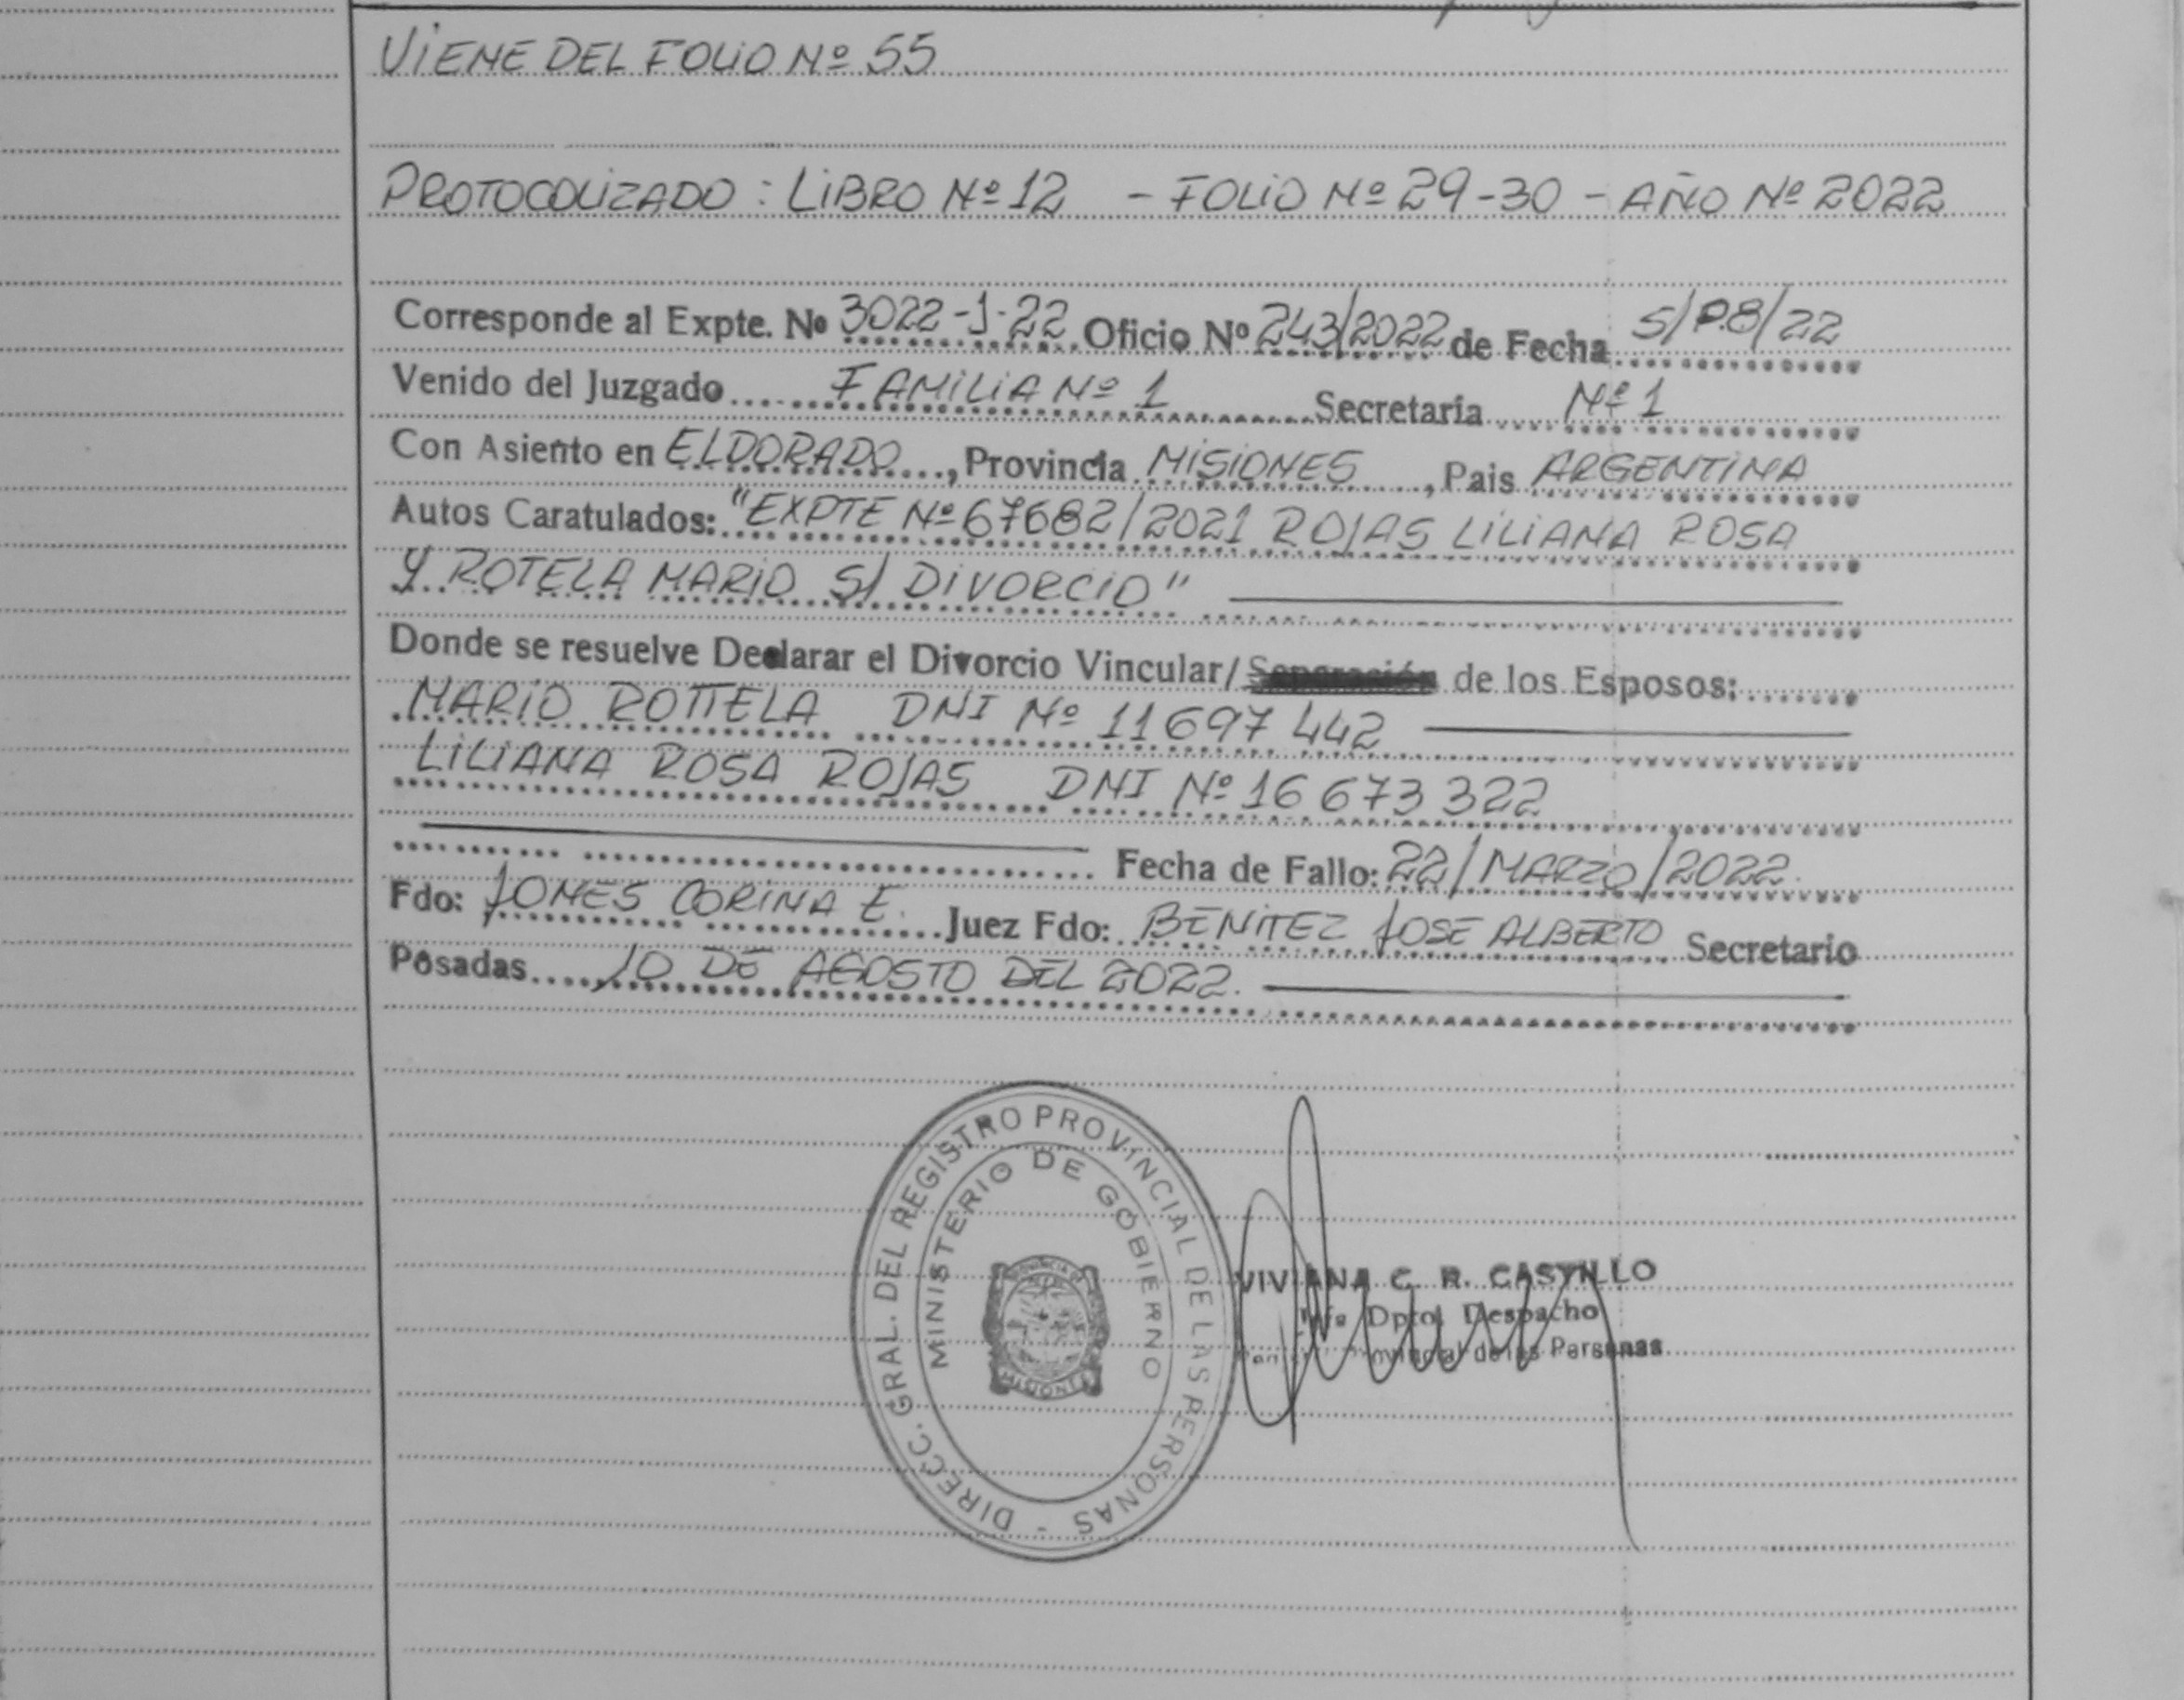 VIENE DEL FOLIO Nº 55
PROTOCOLIZADO : LIBRO Nº 12 - FOLIO Nº 29-30 - AÑO Nº 2022
Corresponde al Expte. Nº 3022-J-22 Oficio Nº 243/2022 de Fecha 5/08/22
Venido del Juzgado FAMILIA Nº 1 Secretaría Nº 1
Con Asiento en ELDORADO, Provincia MISIONES, Pais ARGENTINA
Autos Caratulados: "EXPTE Nº 67682/2021 ROJAS LILIANA ROSA
Y ROTELA MARIO S/ DIVORCIO"
Donde se resuelve Declarar el Divorcio Vincular/Separación de los Esposos:
MARIO ROTTELA DNI Nº 11697442
LILIANA ROSA ROJAS DNI Nº 16673322
Fecha de Fallo: 22/MARZO/2022.
Fdo: JONES CORINA E. Juez Fdo: BENITEZ JOSE ALBERTO Secretario
Posadas 10 DE AGOSTO DEL 2022.
DIRECC. GRAL. DEL REGISTRO PROVINCIAL DE LAS PERSONAS -
MINISTERIO DE GOBIERNO
MISIONES
VIVIANA C. R. CASTILLO
Jefa Dpto. Despacho
Provincial de las Personas